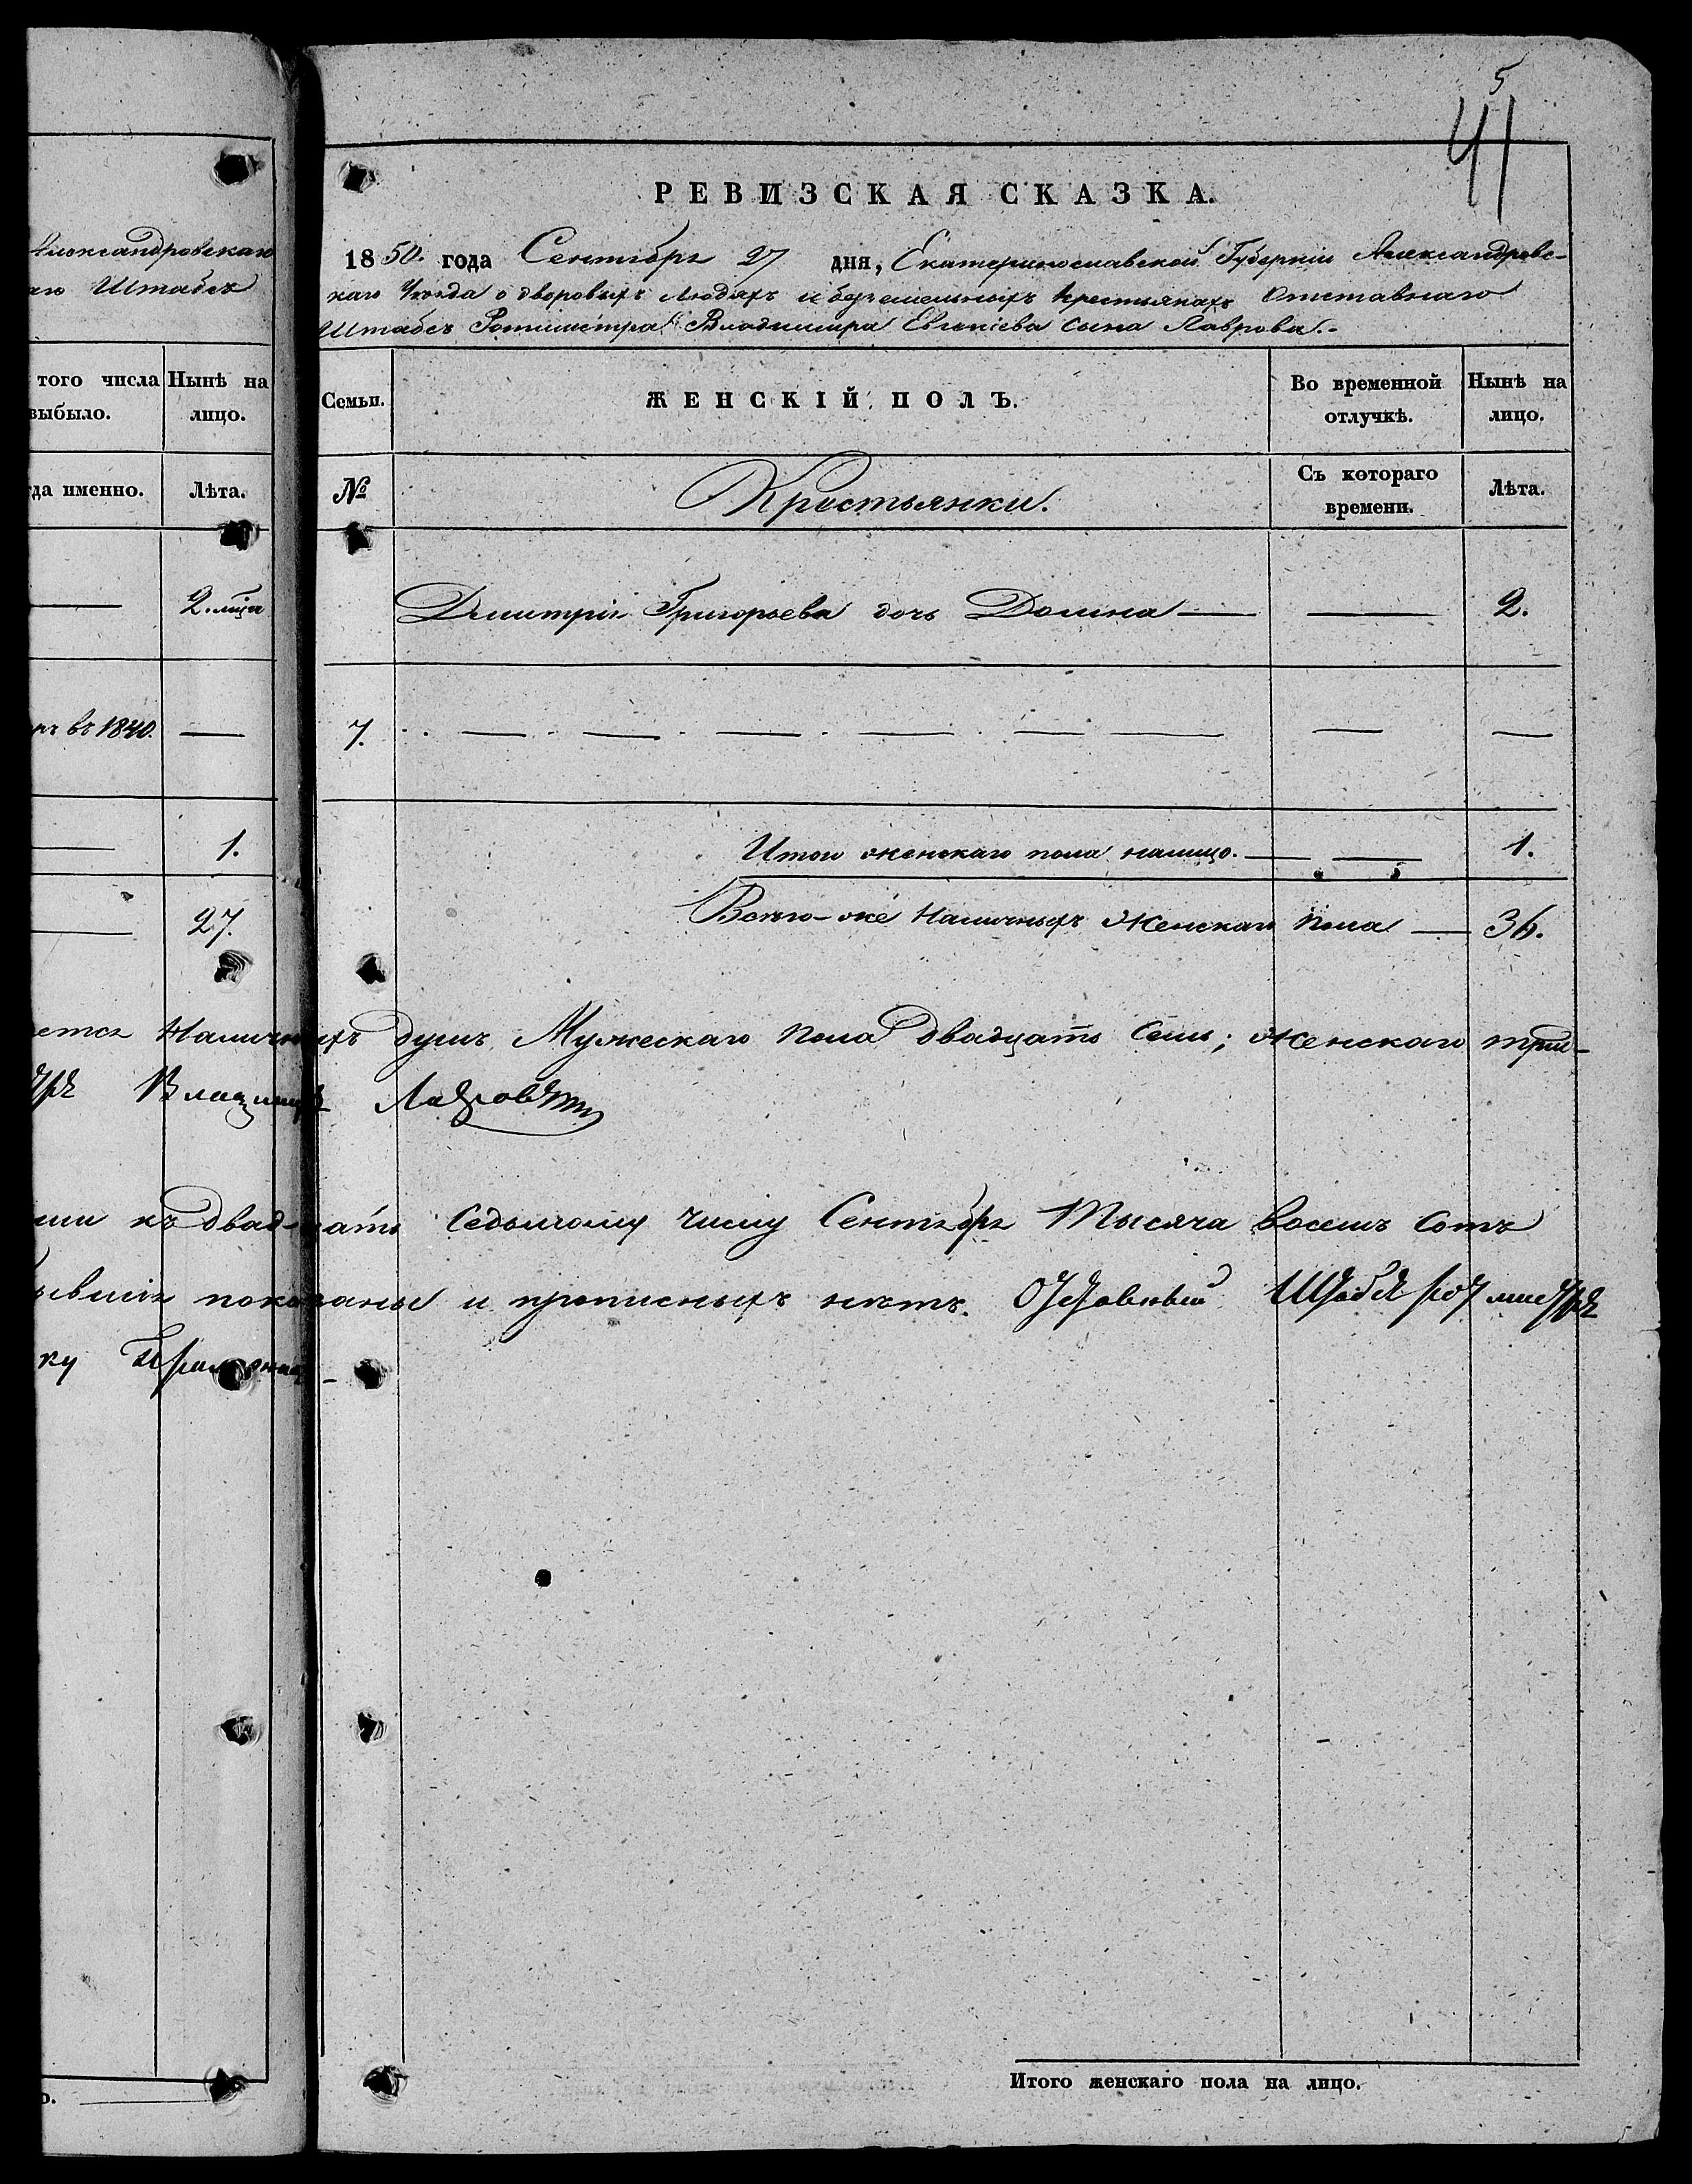 5
41
Александровскаго
Штабсъ
того числа
выбыло.
Нынѣ на
лицо.
Лѣта.
2. мѣся
въ 1840.
—
1.
27.
РЕВИЗСКАЯ СКАЗКА.
1850. года Сентября 27 дня, Екатеринославской Губерніи Александровс-
каго Уѣзда о дворовыхъ людяхъ и безземельныхъ крестьянахъ Отставнаго
Штабсъ Ротмистра Владимира Евгеніева сына Лаврова.-
Семьи.
ЖЕНСКІЙ ПОЛЪ.
Во временной
отлучкѣ.
Нынѣ на
лицо.
№
Крестьянки.
Съ котораго
времени.
Лѣта.
Дмитрія Григорьева дочь Домна — — 2.
7. — — — — — — — —
Итого женскаго пола налицо. — — 1.
Всего-же Наличныхъ Женскаго пола — 36.
Наличныхъ душъ Мужескаго пола двадцать семь; женскаго трид-
Владимиръ Лавровъ
къ двадцать седьмому числу Сентября Тысяча восемь сотъ
показаны и прописныхъ нѣтъ. Отставный Штабсъ ротмистръ
Итого женскаго пола на лицо.